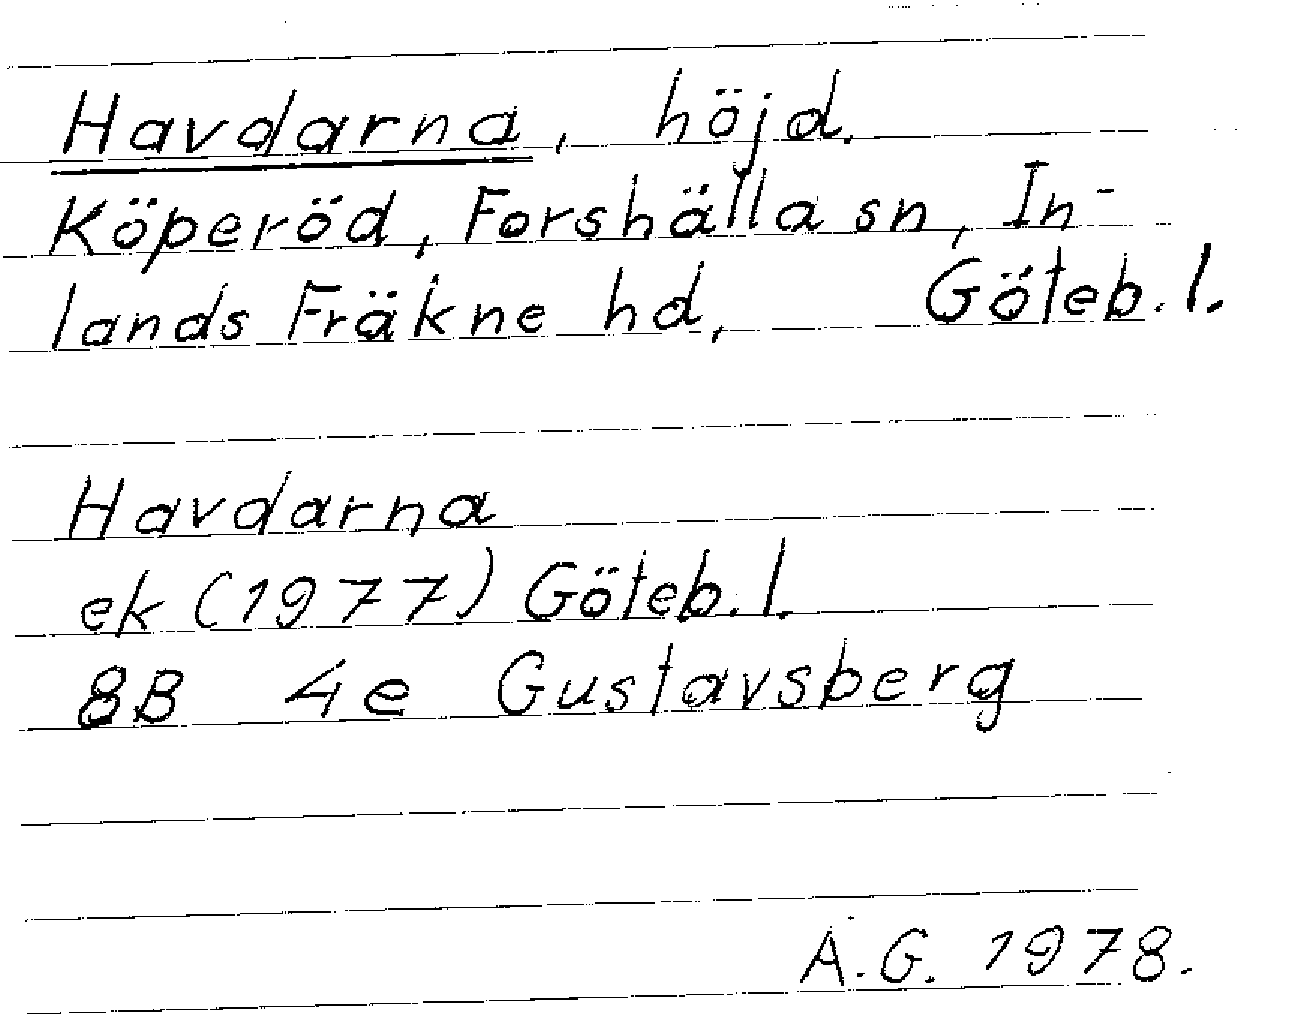 Havdarna, höjd.
Köperöd, Forshälla sn, In-
lands Fräkne hd, Göteb. l.
Havdarna
ek (1977) Göteb. l.
8B 4e Gustavsberg
A.G. 1978.